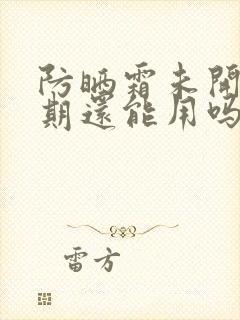 防晒霜未開
期還能用吗
雷方